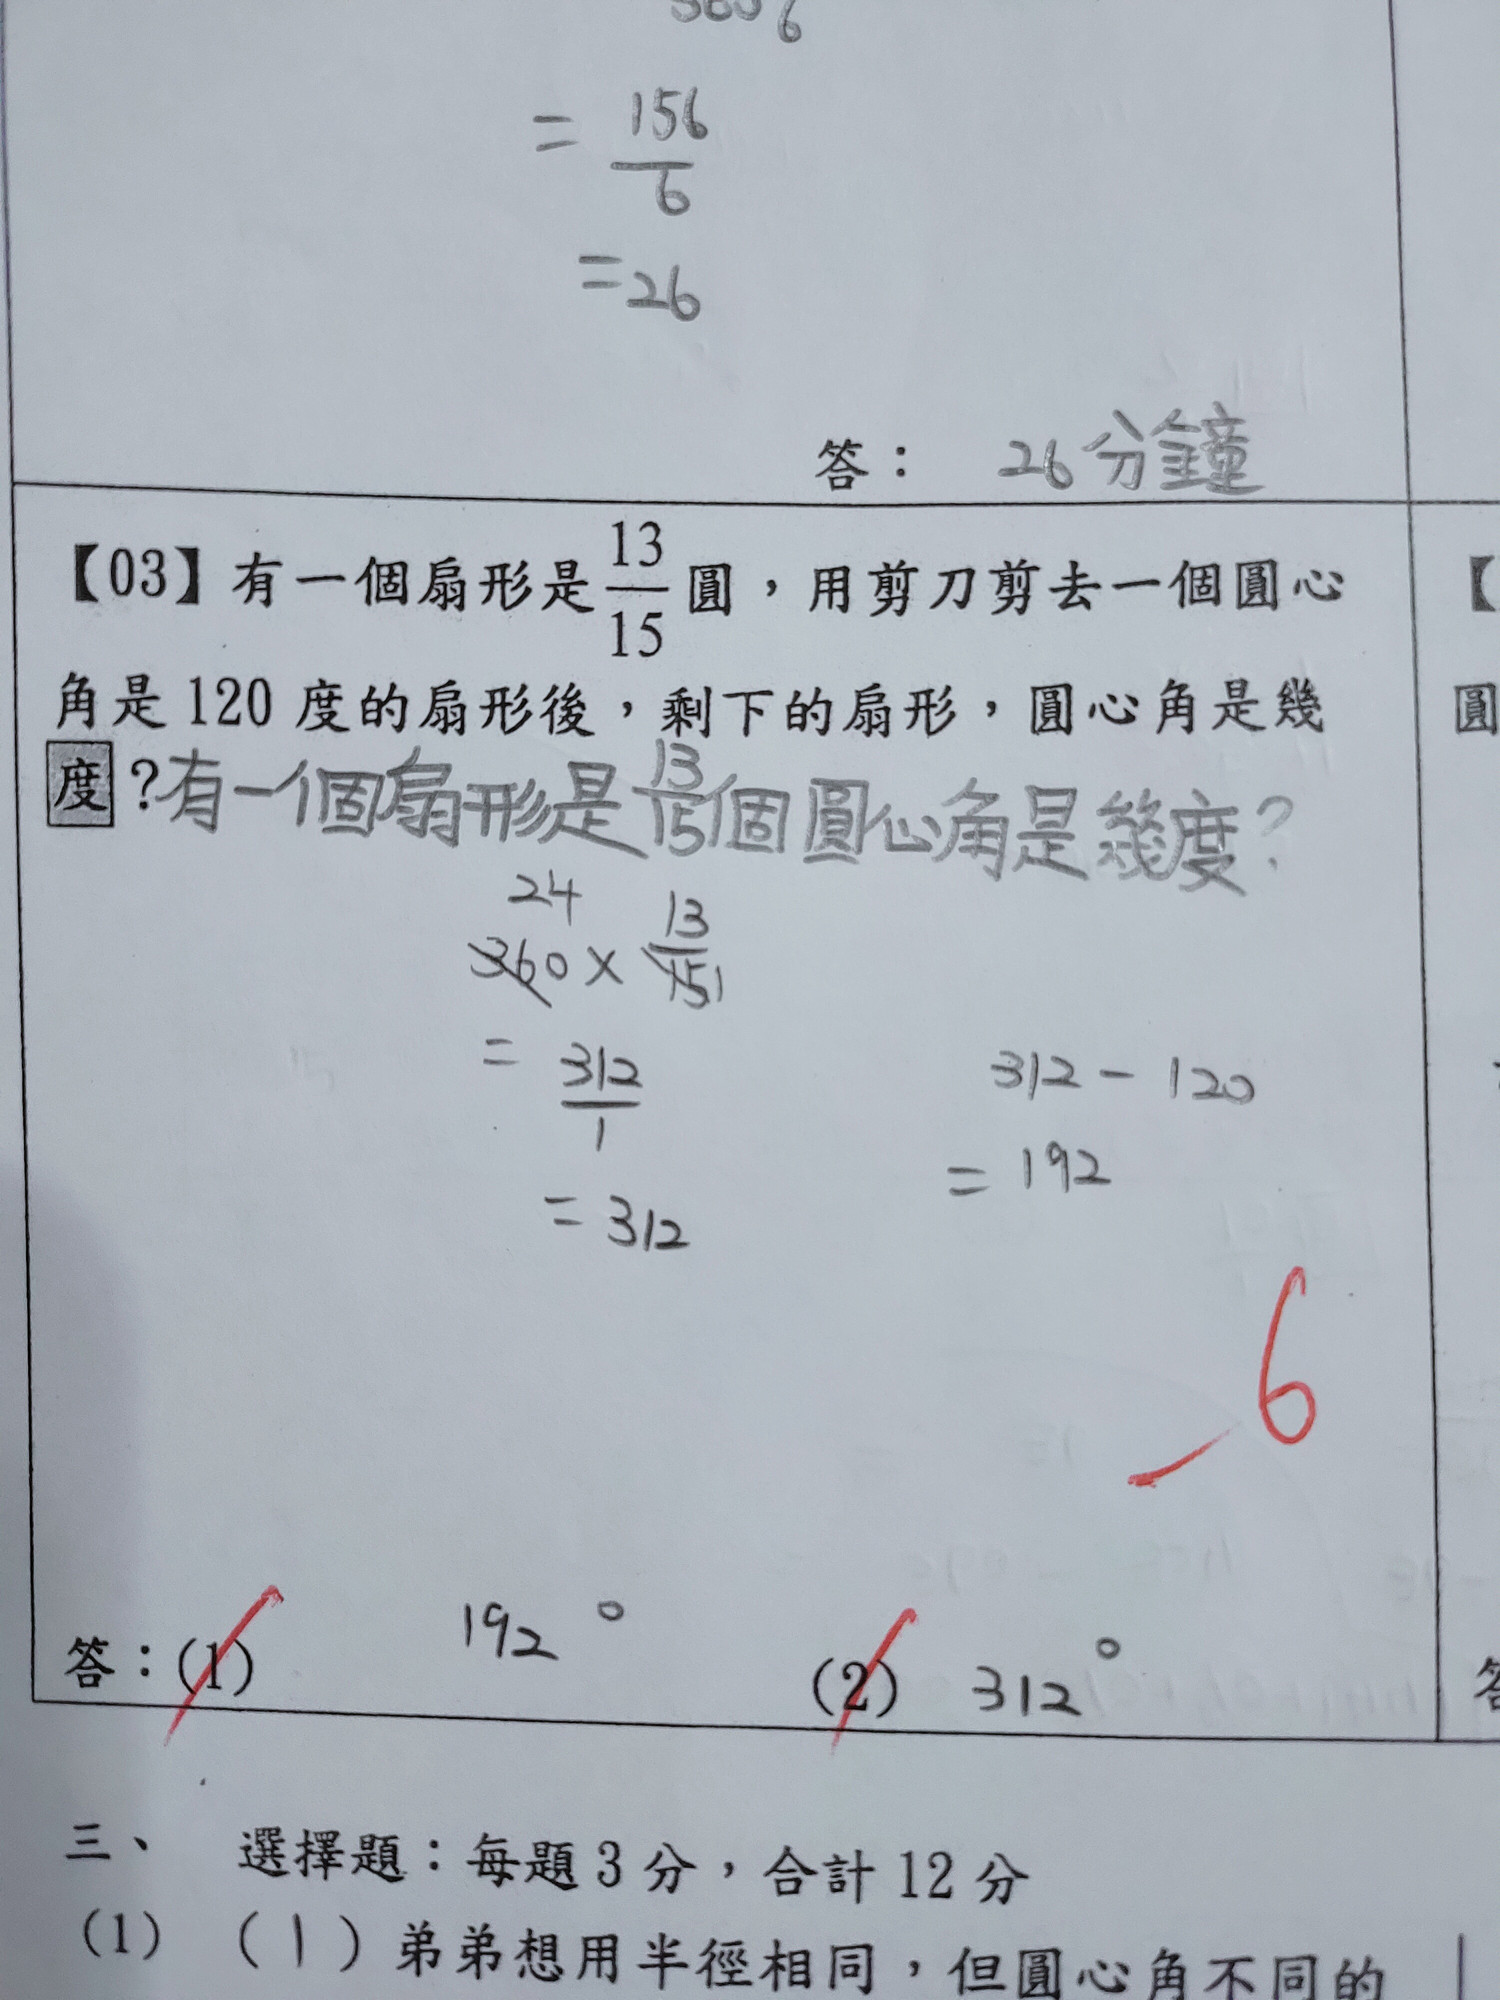 = 156/6
= 26
答： 26分鐘
【03】有一個扇形是13/15圓，用剪刀剪去一個圓心
角是120度的扇形後，剩下的扇形，圓心角是幾
度？有一個扇形是13/15個圓心角是幾度？
24
360 × 13/15 1
= 312/1
= 312
312 - 120
= 192
-6
答：(1) 192° (2) 312°
三、 選擇題：每題3分，合計12分
(1) (1) 弟弟想用半徑相同，但圓心角不同的
【
圓